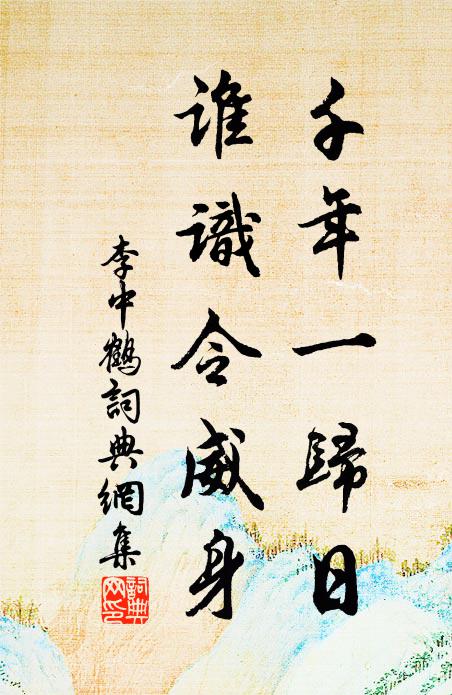 千年一歸日
誰識令威身
李中鶴詞典網集
詞典網印